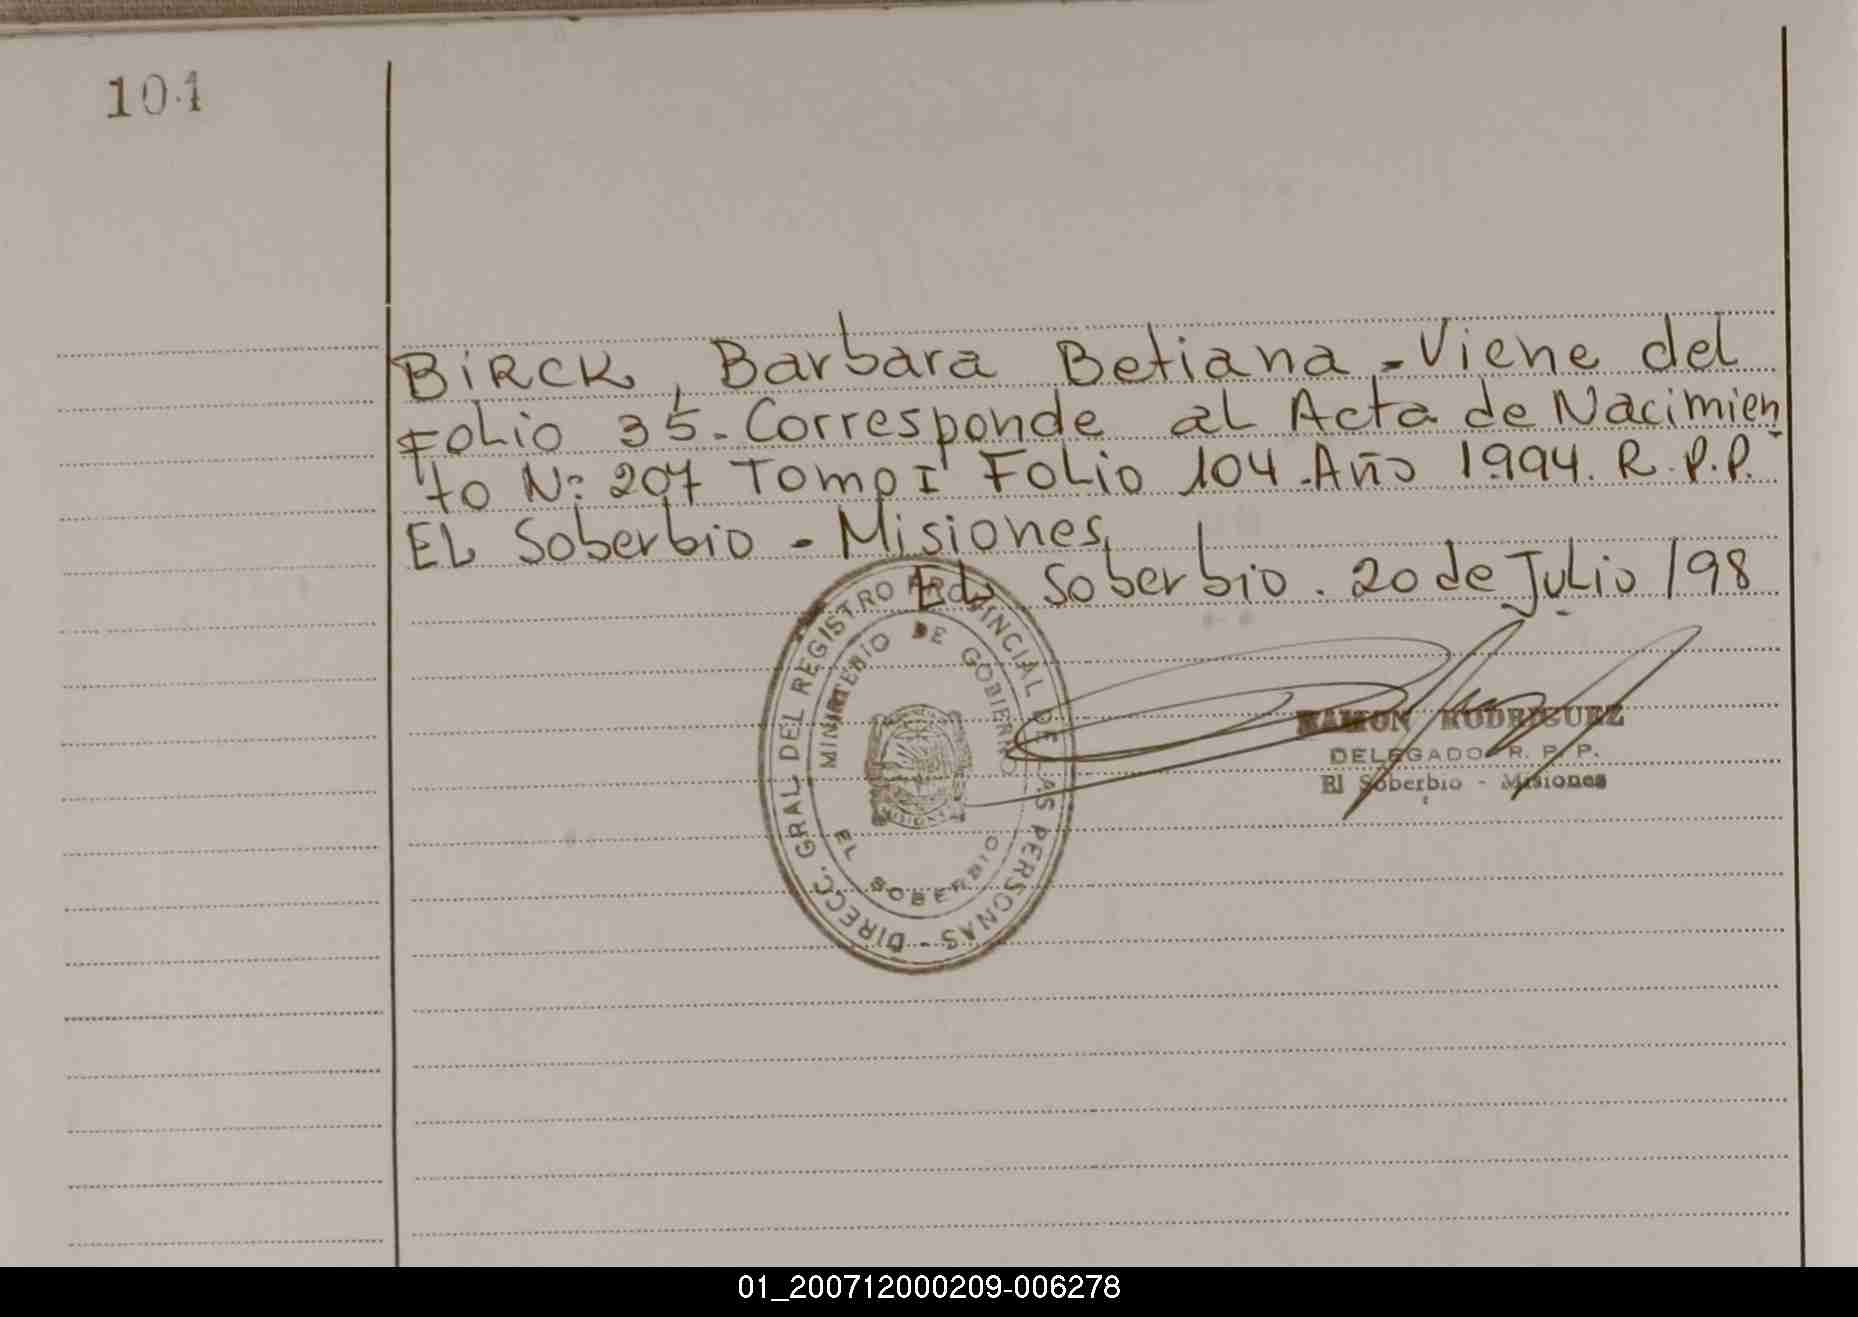 101
BIRCK, Barbara Betiana - Viene del
Folio 35 - Corresponde al Acta de Nacimien
to Nº 207 Tomo I Folio 104 - Año 1994. R.P.P.
EL Soberbio - Misiones,
EL Soberbio. 20 de Julio /98
DIRECC. GRAL. DEL REGISTRO PROVINCIAL DE LAS PERSONAS -
MINISTERIO DE GOBIERNO
EL SOBERBIO
MISIONES
RAMON RODRIGUEZ
DELEGADO R. P. P.
El Soberbio - Misiones
01_200712000209-006278